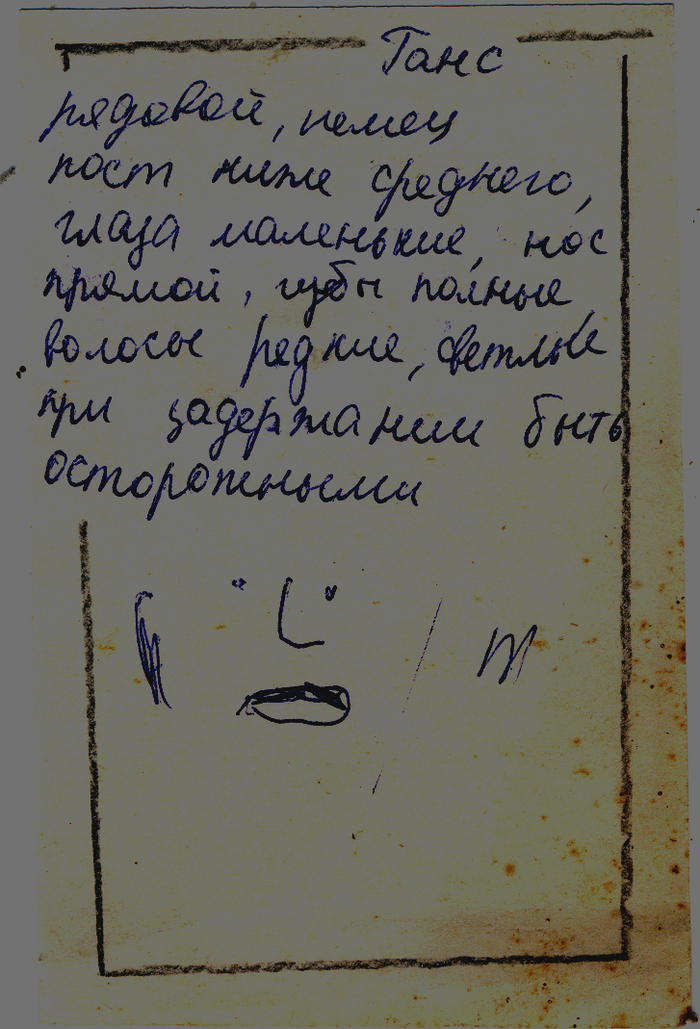 Ганс
рядовой, немец
рост ниже среднего,
глаза маленькие, нос
прямой, губы полные,
волосы редкие, светлые
при задержании быть
осторожными